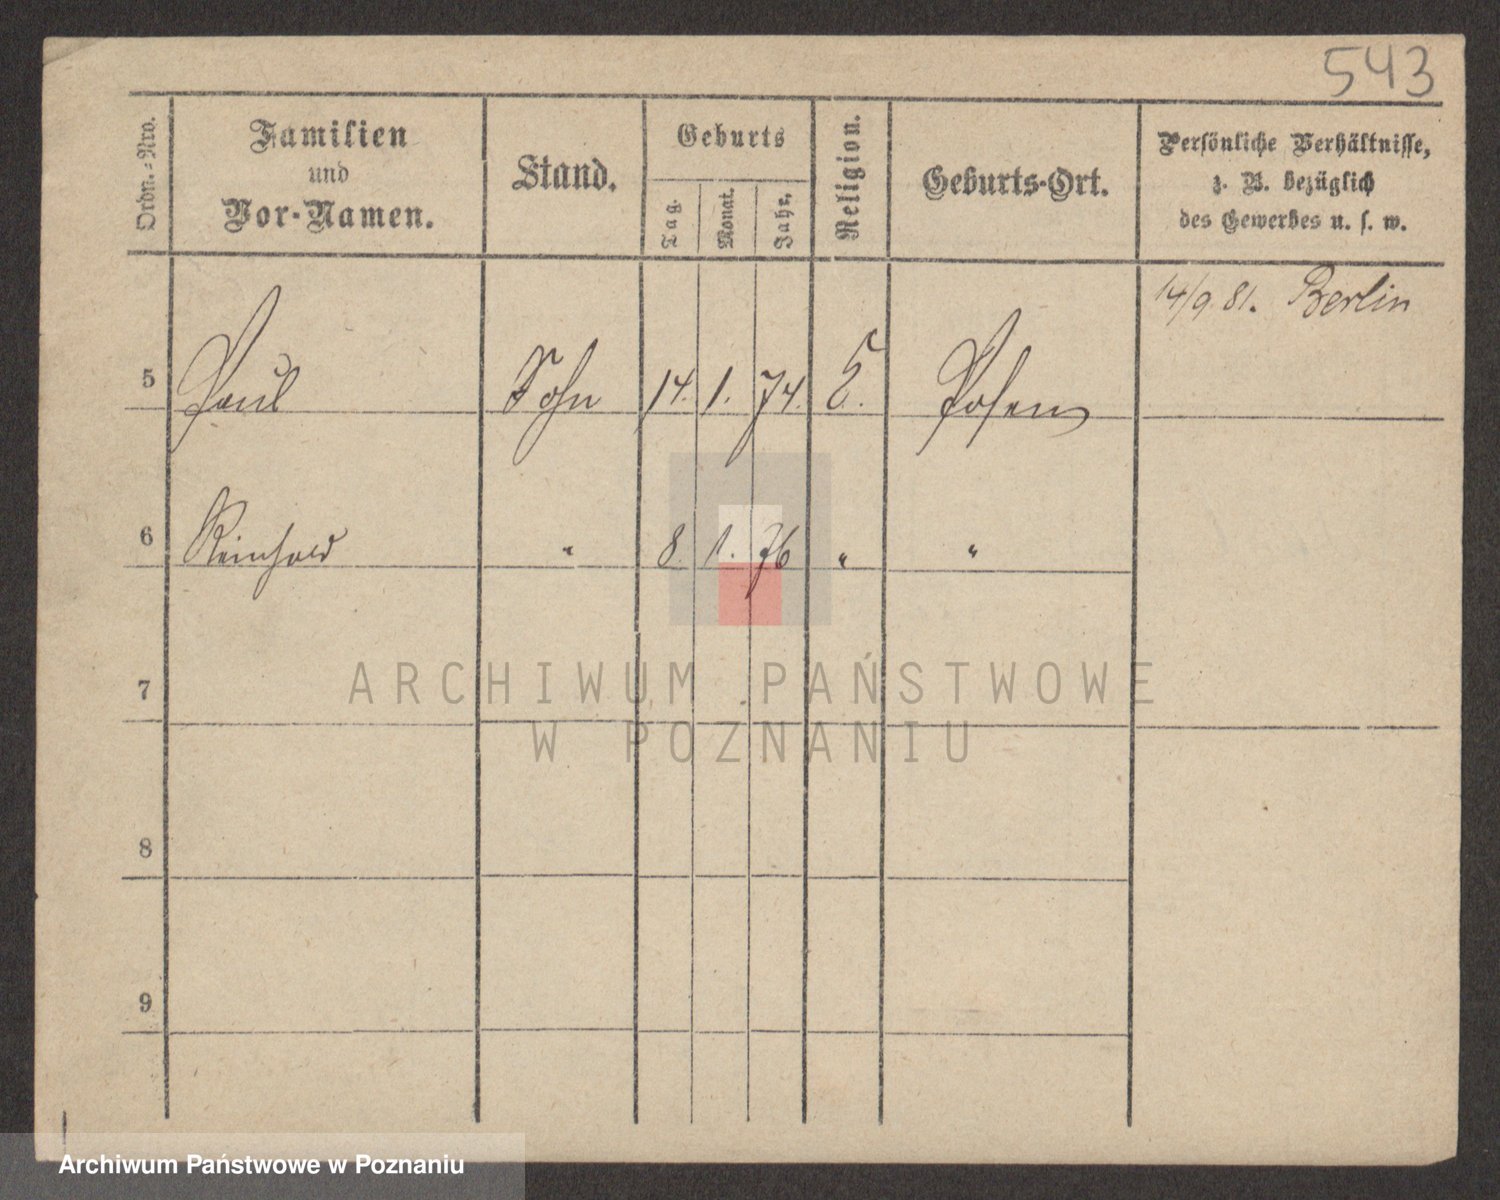 543
Ordn.-Nro.
Familien
und
Vor-Namen.
Stand.
Geburts
Tag.
Monat.
Jahr.
Religion.
Geburts-Ort.
Persönliche Verhältnisse,
z. B. bezüglich
des Gewerbes u. s. w.
14/9. 81. Berlin
5 Paul Sohn 14. 1. 74. E. Posen
6 Reinhold " 8. 1. 76 " "
7
8
9
ARCHIWUM PAŃSTWOWE
W POZNANIU
Archiwum Państwowe w Poznaniu